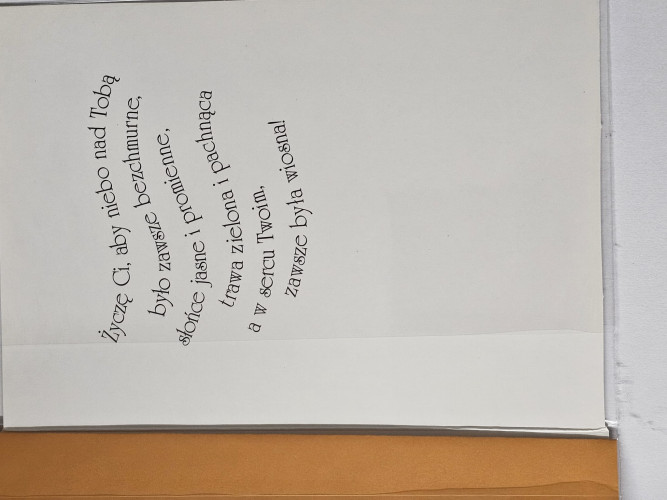 Życzę Ci, aby niebo nad Tobą
było zawsze bezchmurne,
słońce jasne i promienne,
trawa zielona i pachnąca
a w sercu Twoim,
zawsze była wiosna!